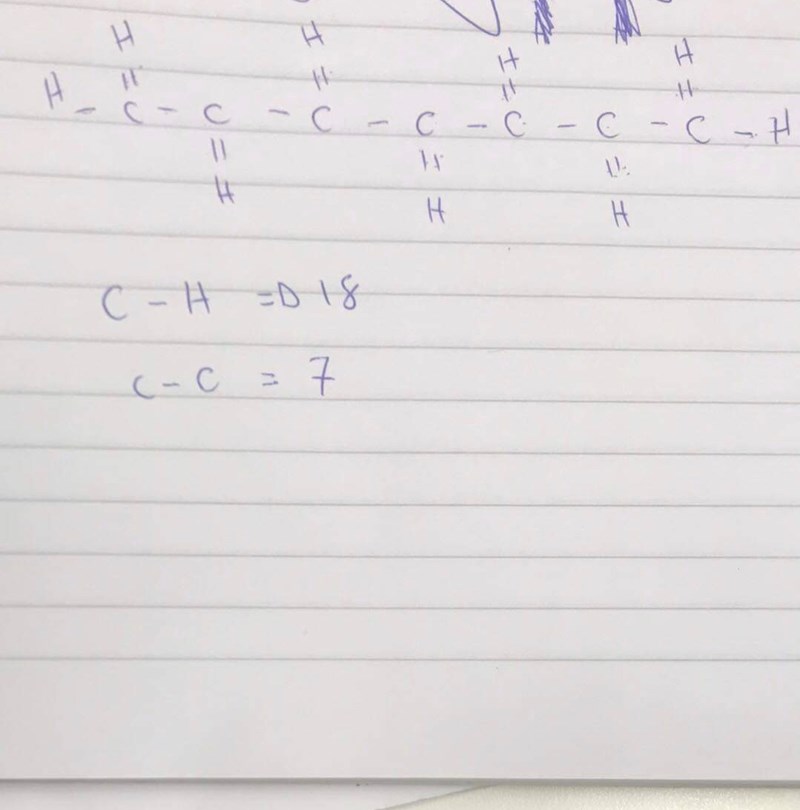 H H H H
= = = =
H - C - C - C - C - C - C - C - H
= = =
H H H
C - H => 18
C - C = 7